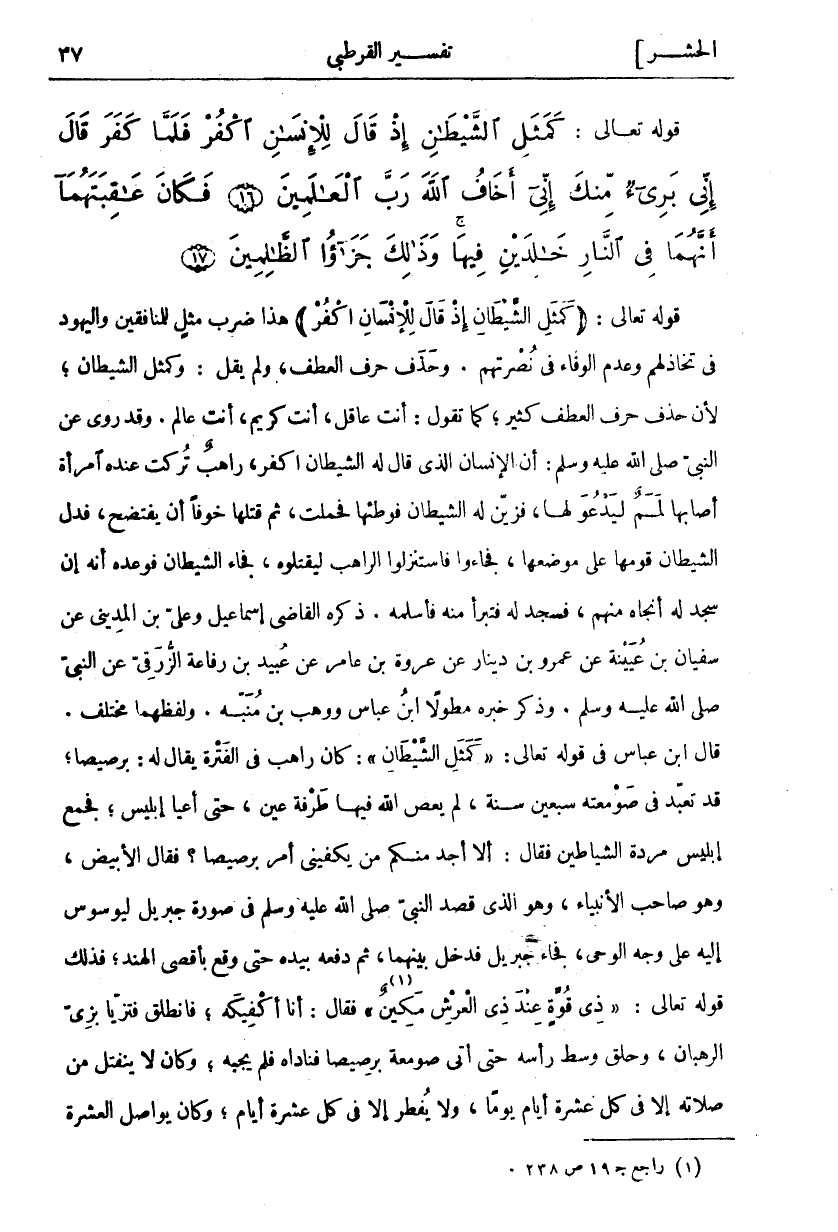 الحشر] تفسير القرطبي ٣٧
قوله تعالى : كَمَثَلِ ٱلشَّيْطَـٰنِ إِذْ قَالَ لِلْإِنسَـٰنِ ٱكْفُرْ فَلَمَّا كَفَرَ قَالَ
إِنِّى بَرِىٓءٌ مِّنكَ إِنِّىٓ أَخَافُ ٱللَّهَ رَبَّ ٱلْعَـٰلَمِينَ ١٦ فَكَانَ عَـٰقِبَتَهُمَآ
أَنَّهُمَا فِى ٱلنَّارِ خَـٰلِدَيْنِ فِيهَا ۚ وَذَٰلِكَ جَزَٰٓؤُا ٱلظَّـٰلِمِينَ ١٧
قوله تعالى : ﴿كَمَثَلِ الشَّيْطَانِ إِذْ قَالَ لِلْإِنْسَانِ اكْفُرْ﴾ هذا ضرب مثلٍ للنافقين واليهود
فى تخاذلهم وعدم الوفاء فى نُصْرتهم . وحَذَف حرف العطف، ولم يقل : وكمثل الشيطان ؛
لأن حذف حرف العطف كثير ؛ كما تقول : أنت عاقل، أنت كريم، أنت عالم . وقد روى عن
النبىّ صلى الله عليه وسلم : أن الإنسان الذى قال له الشيطان اكفر، راهبٌ تُركت عنده آمرأة
أصابها لَمَـمٌ ليَدْعُوَ لهـا ، فزيّن له الشيطان فوطئها فحملت ، ثم قتلها خوفاً أن يفتضح ، فدل
الشيطان قومها على موضعها ، فجاءوا فاستنزلوا الراهب ليقتلوه ، فجاء الشيطان فوعده أنه إن
سجد له أنجاه منهم ، فسجد له فتبرأ منه فأسلمه . ذكره القاضى إسماعيل وعلىّ بن المدِينى عن
سفيان بن عُيَيْنة عن عمرو بن دينار عن عروة بن عامر عن عُبيد بن رفاعة الزُّرَقِىّ عن النبىّ
صلى الله عليـه وسلم . وذكر خبره مطولًا ابنُ عباس ووهب بن مُنَبّـه . ولفظهما مختلف .
قال ابن عباس فى قوله تعالى : « كَمَثَلِ الشَّيْطَانِ » : كان راهب فى الفَتْرة يقال له : برصيصا ؛
قد تعبّد فى صَوْمعته سبعين سـنة ، لم يعص الله فيهـا طَرْفة عين ، حتى أعيا إبليس ؛ فجمع
إبليس مردة الشياطين فقال : ألا أجد منـكم من يكفينى أمر برصيصا ؟ فقال الأبيض ،
وهو صاحب الأنبياء ، وهو الذى قصد النبىّ صلى الله عليه وسلم فى صورة جبريل ليوسوس
إليه على وجه الوحى ، فجاء جبريل فدخل بينهما ، ثم دفعه بيده حتى وقع بأقصى الهند ؛ فذلك
قوله تعالى : « ذِى قُوَّةٍ عِنْدَ ذِى الْعَرْشِ مَكِينٌ(١) » فقال : أنا أكْفِيكَه ؛ فانطلق فتزيّا بزِىّ
الرهبان ، وحلق وسط رأسه حتى أتى صومعة برصيصا فناداه فلم يجبه ؛ وكان لا ينفتل من
صلاته إلا فى كل عشرة أيام يومًا ، ولا يُفطر إلا فى كل عشرة أيام ؛ وكان يواصل العشرة
(١) راجع جـ ١٩ ص ٢٣٨ .